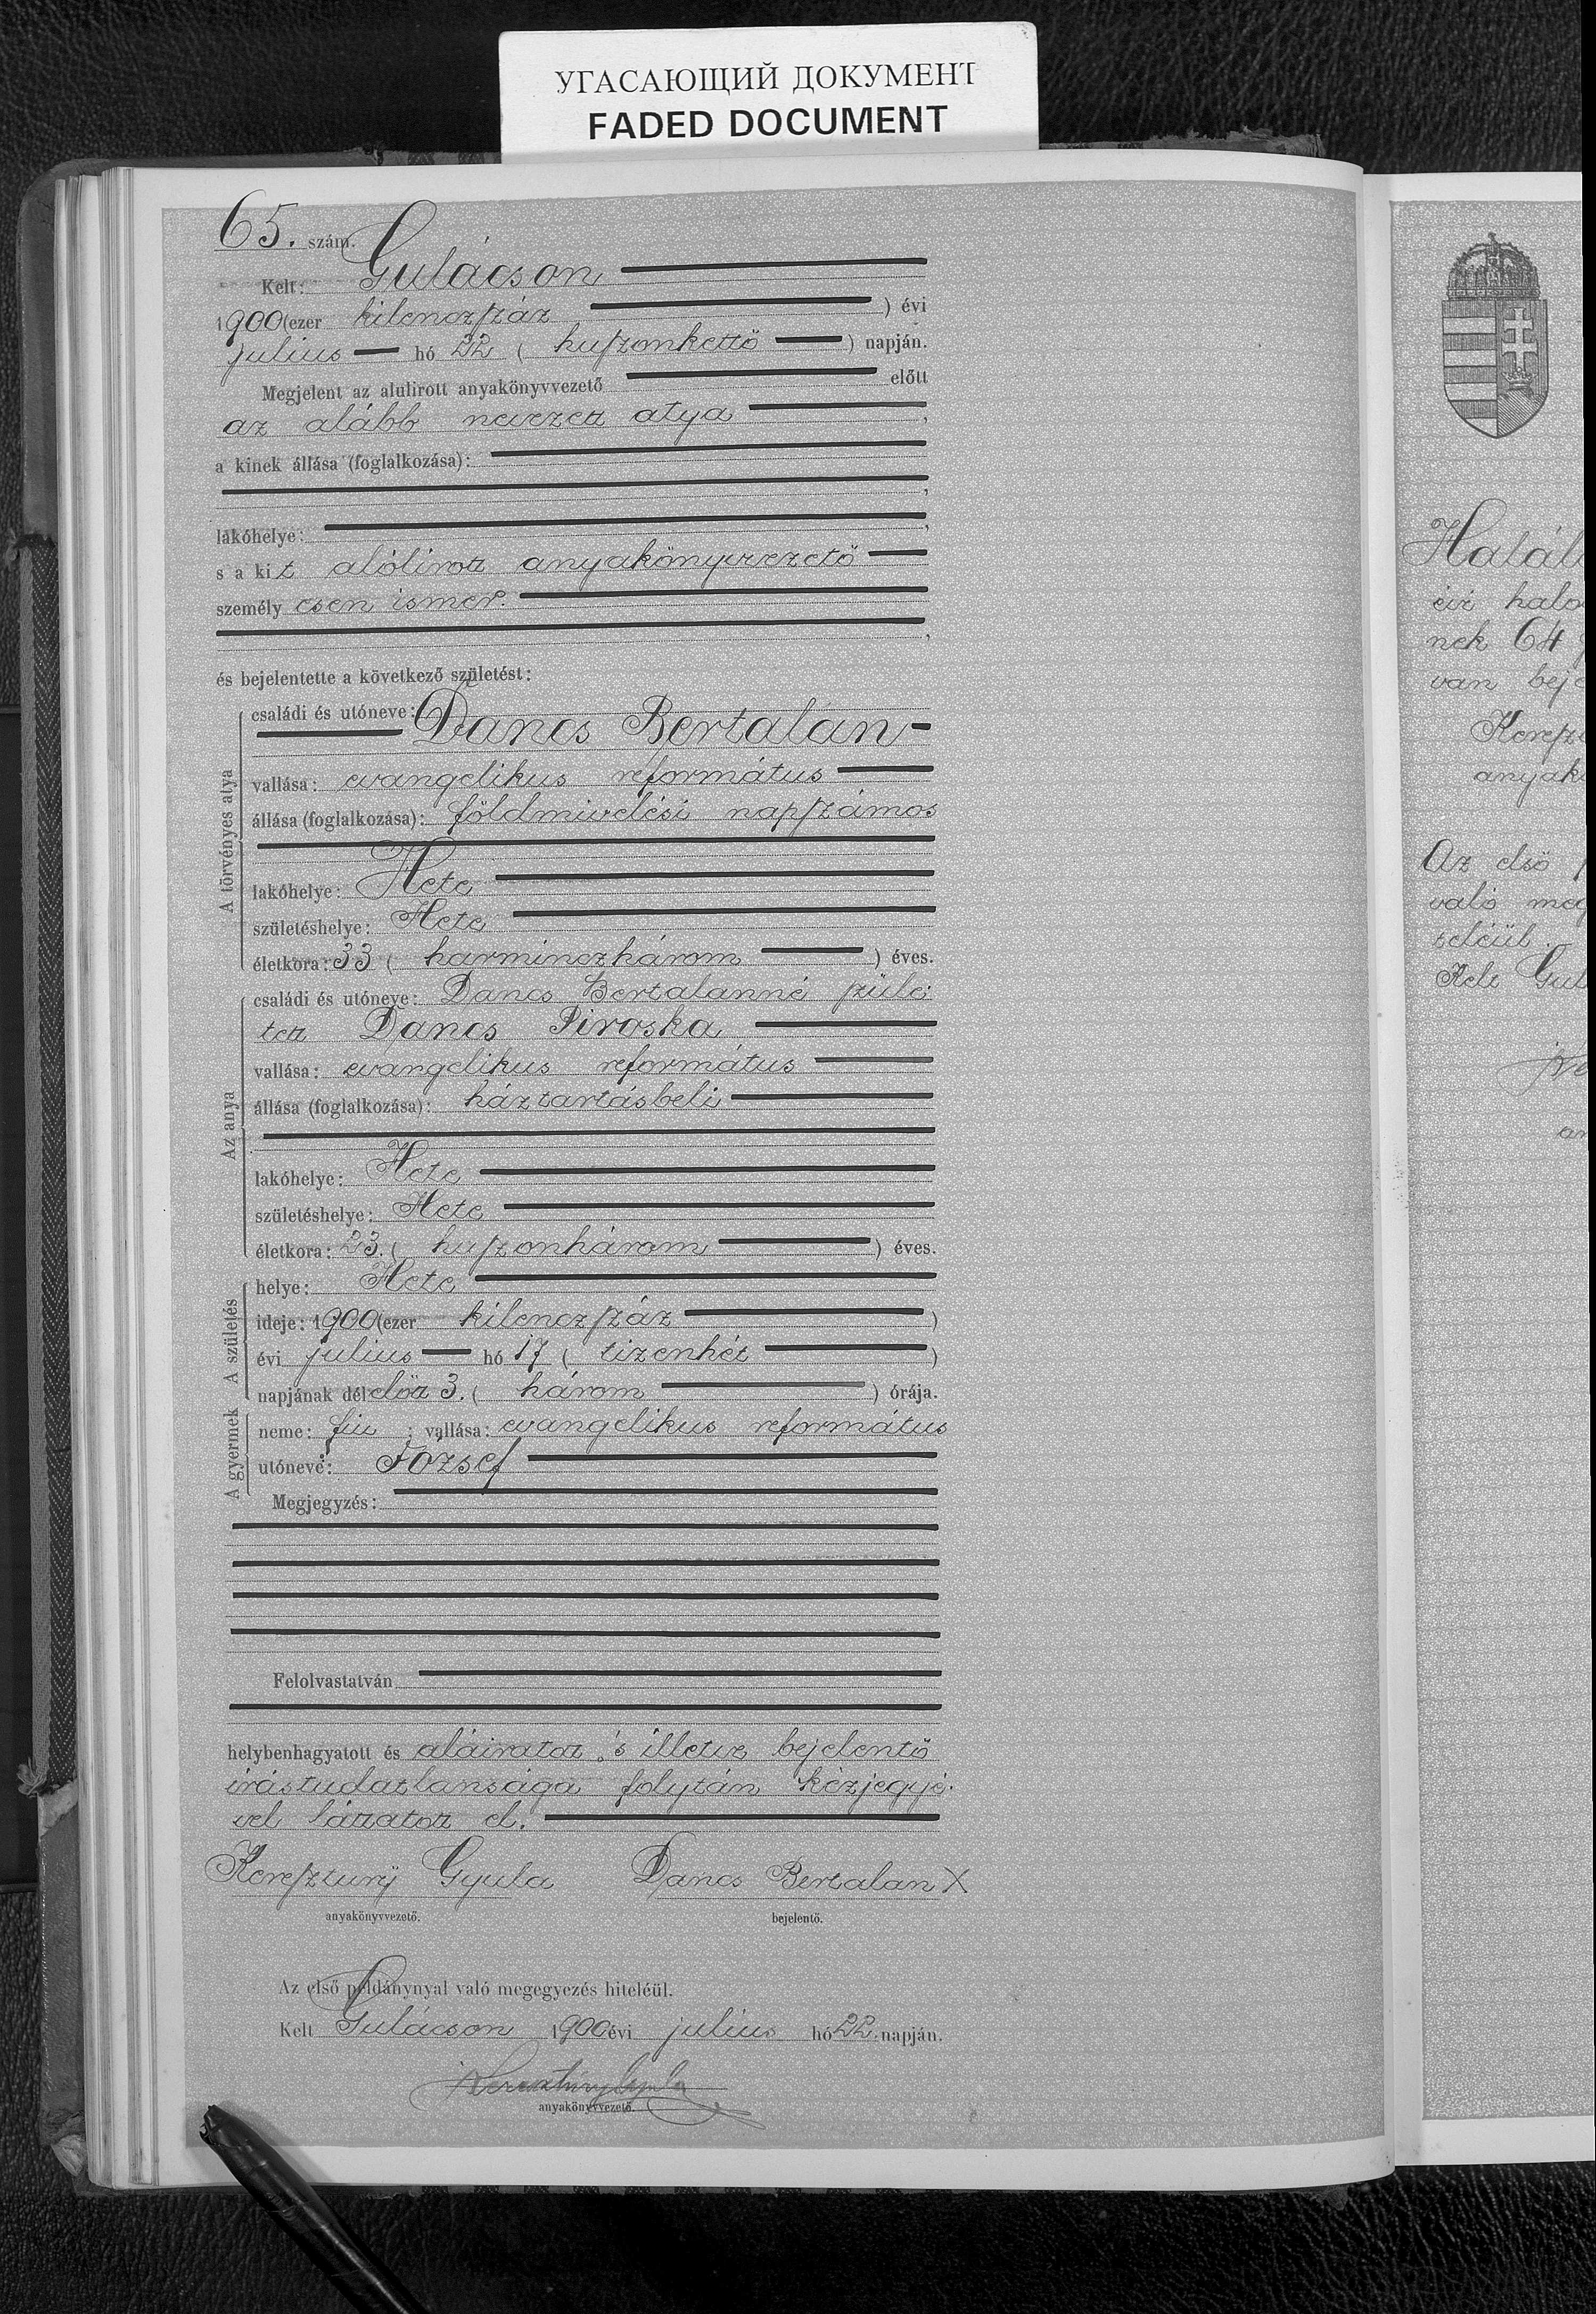 УГАСАЮЩИЙ ДОКУМЕНТ
FADED DOCUMENT
65. szám.
Kelt: Gulácson
1900 (ezer kilenczszáz ) évi
julius hó 22 ( huszonkettő ) napján.
Megjelent az alulirott anyakönyvvezető előtt
az alább nevezett atya ,
a kinek állása (foglalkozása):
,
lakóhelye: ,
s a kit alólirott anyakönyvvezető
személyesen ismer.
,
és bejelentette a következő születést:
A törvényes atya
családi és utóneve:
Dancs Bertalan
vallása: evangelikus református
állása (foglalkozása): földmivelési napszámos
lakóhelye: Hete
születéshelye: Hete
életkora: 33 ( harminczhárom ) éves.
Az anya
családi és utóneve: Dancs Bertalanné szüle-
tett Dancs Piroska
vallása: evangelikus református
állása (foglalkozása): háztartásbeli
lakóhelye: Hete
születéshelye: Hete
életkora: 23. ( huszonhárom ) éves.
A születés
helye: Hete
ideje: 1900 (ezer kilenczszáz )
évi julius hó 17 ( tizenhét )
napjának délelőtt 3. ( három ) órája.
A gyermek
neme: fiu ; vallása: evangelikus református
utóneve: József
Megjegyzés:
Felolvastatván
helybenhagyatott és aláiratott, s illetve bejelentő
irástudatlansága folytán kézjegyé-
vel láttatott el.
Keresztury Gyula Dancs Bertalan X
anyakönyvvezető. bejelentő.
Az első példánynyal való megegyezés hiteléül.
Kelt Gulácson 1900 évi julius hó 22. napján.
Keresztury Gyula
anyakönyvvezető.
nek 64
van
Az első
való meg
teléül.
Kelt Gul